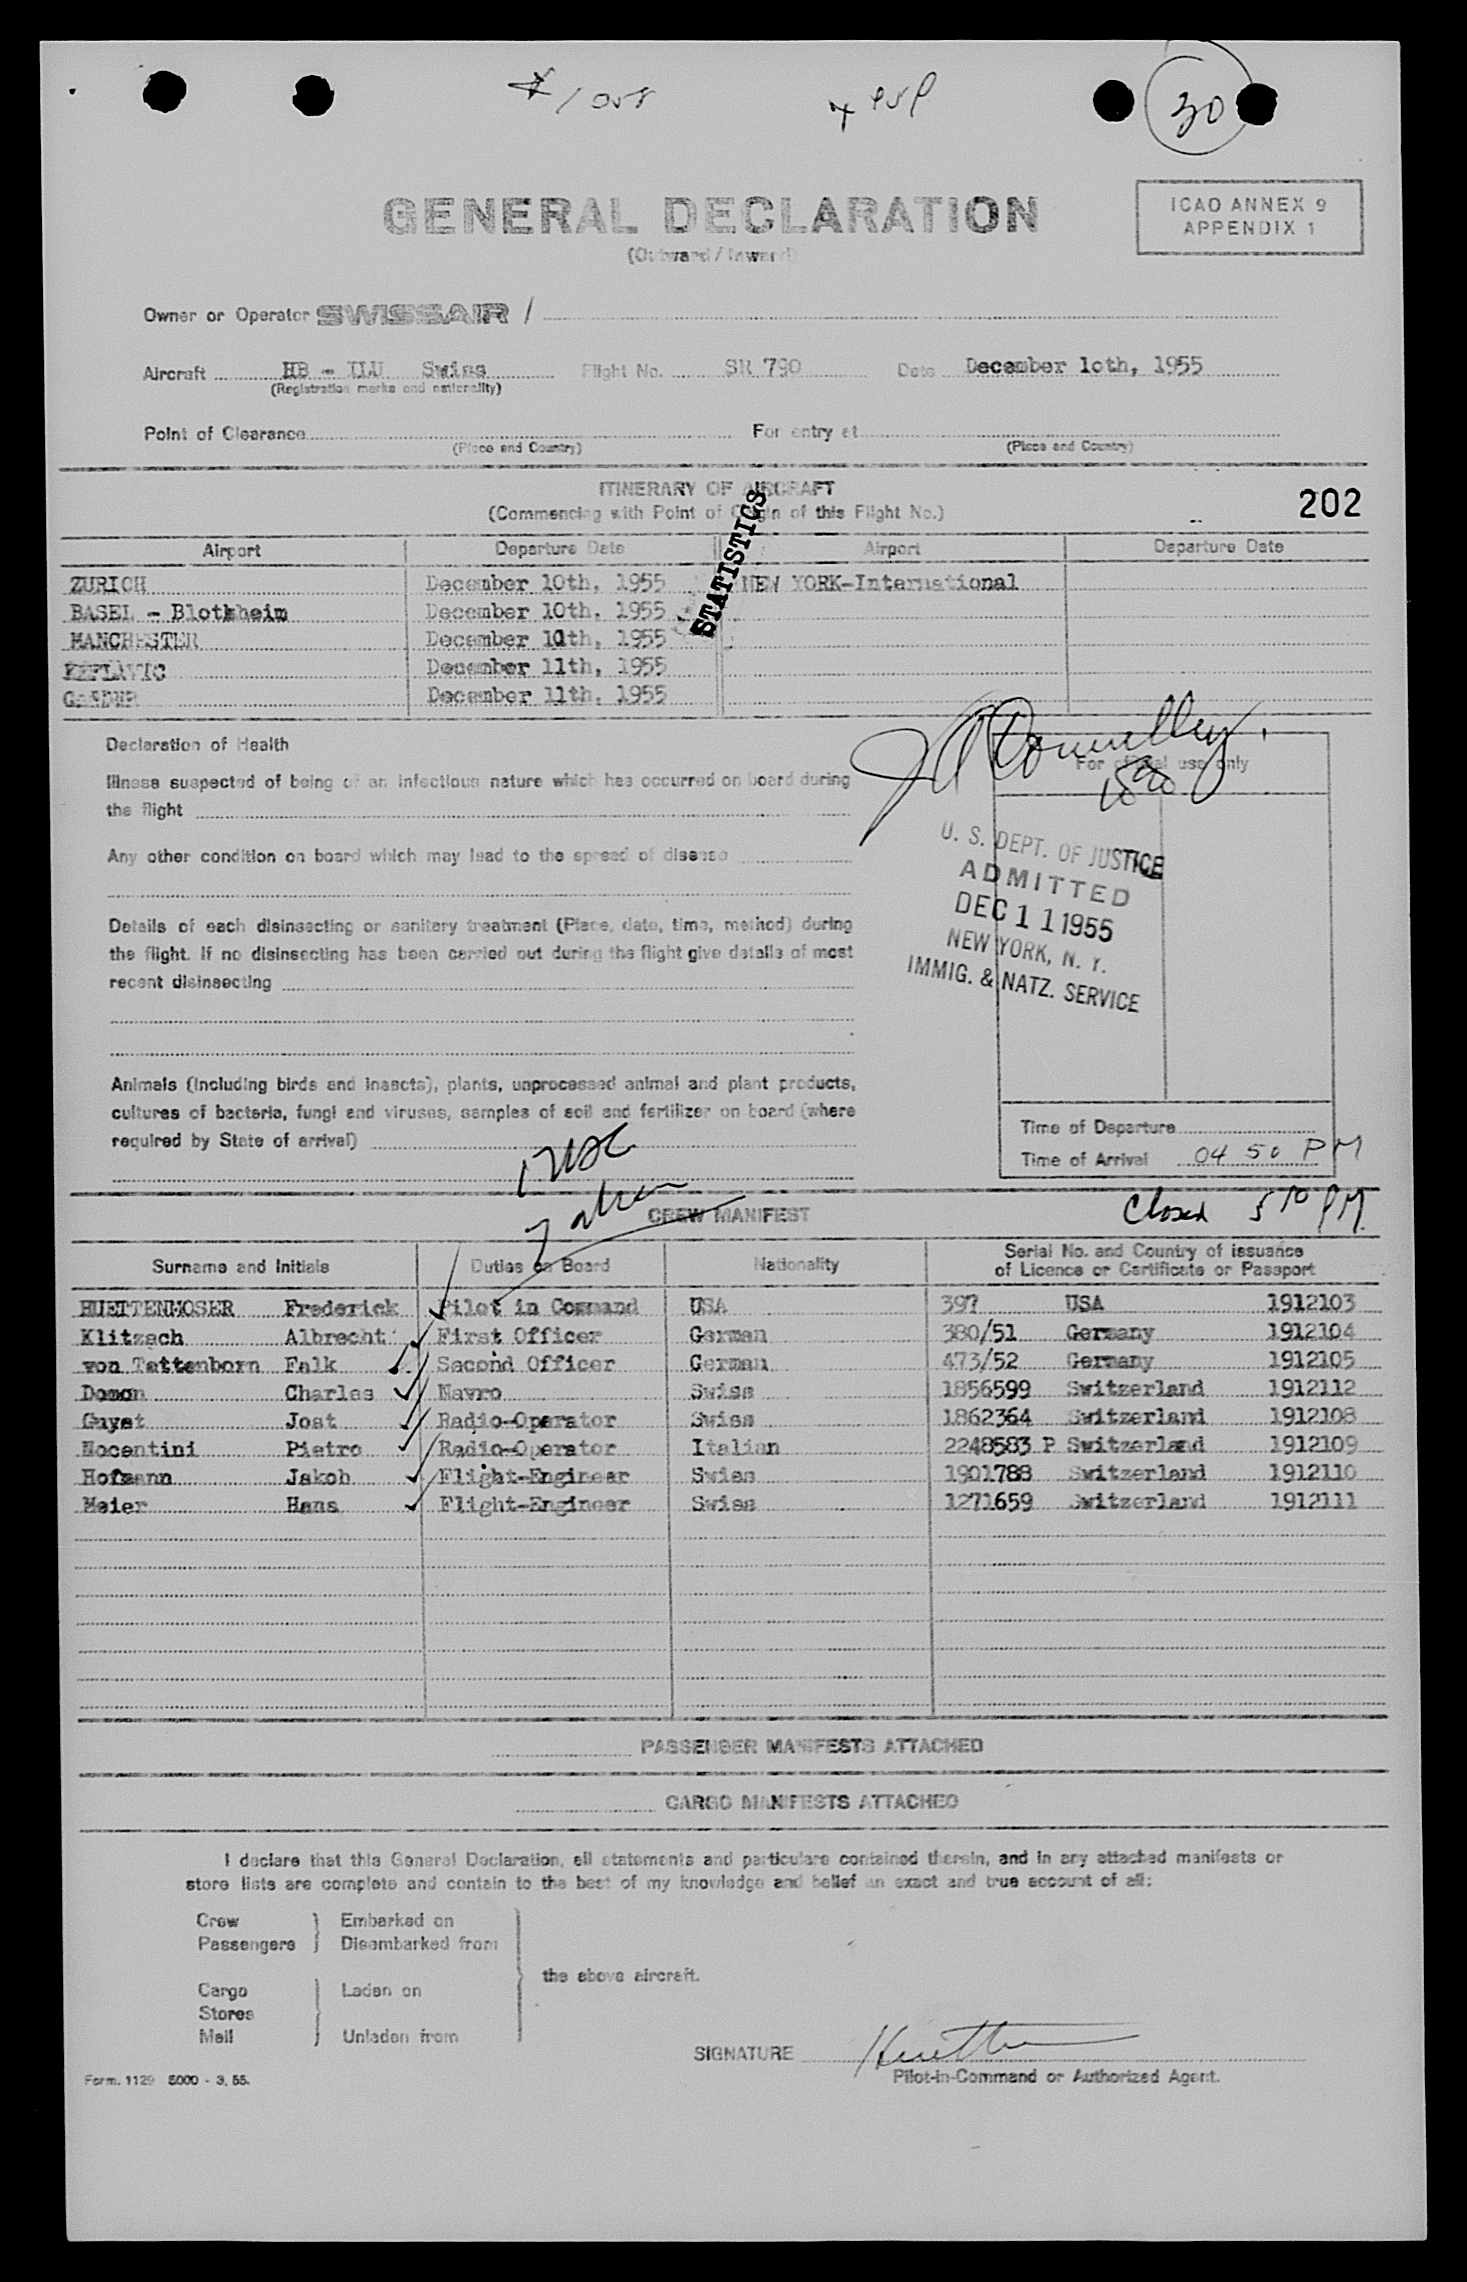 30
GENERAL DECLARATION
(Outward / Inward)
ICAO ANNEX 9
APPENDIX 1
Owner or Operator SWISSAIR /
Aircraft HB - ILU Swiss Flight No. SR 790 Date December 1oth, 1955
(Registration marks and nationality)
Point of Clearance For entry at
(Place and Country) (Place and Country)
ITINERARY OF AIRCRAFT
(Commencing with Point of Origin of this Flight No.)
202
STATISTICS
Airport Departure Date Airport Departure Date
ZURICH December 10th, 1955 NEW YORK-International
BASEL - Blotkheim December 10th, 1955
MANCHESTER December 10th, 1955
KEFLAVIC December 11th, 1955
GANDER December 11th, 1955
Declaration of Health
For official use only
Illness suspected of being of an infectious nature which has occurred on board during
the flight
Any other condition on board which may lead to the spread of disease
Details of each disinsecting or sanitary treatment (Place, date, time, method) during
the flight. If no disinsecting has been carried out during the flight give details of most
recent disinsecting
U. S. DEPT. OF JUSTICE
ADMITTED
DEC 11 1955
NEW YORK, N. Y.
IMMIG. & NATZ. SERVICE
Animals (including birds and insects), plants, unprocessed animal and plant products,
cultures of bacteria, fungi and viruses, samples of soil and fertilizer on board (where
required by State of arrival)
Time of Departure
Time of Arrival 04 50 PM
Closed 5 10 PM
1 USC
7 alien
CREW MANIFEST
Surname and Initials Duties on Board Nationality Serial No. and Country of issuance
of Licence or Certificate or Passport
HUETTENMOSER Frederick Pilot in Command USA 397 USA 1912103
Klitzsch Albrecht First Officer German 380/51 Germany 1912104
von Tettenborn Falk Second Officer German 473/52 Germany 1912105
Domon Charles Navro Swiss 1856599 Switzerland 1912112
Guyat Jost Radio-Operator Swiss 1862364 Switzerland 1912108
Nocentini Pietro Radio-Operator Italian 2248583 P Switzerland 1912109
Hofmann Jakob Flight-Engineer Swiss 1901788 Switzerland 1912110
Meier Hans Flight-Engineer Swiss 1271659 Switzerland 1912111
PASSENGER MANIFESTS ATTACHED
CARGO MANIFESTS ATTACHED
I declare that this General Declaration, all statements and particulars contained therein, and in any attached manifests or
store lists are complete and contain to the best of my knowledge and belief an exact and true account of all:
Crew Embarked on
Passengers Disembarked from
the above aircraft.
Cargo Laden on
Stores
Mail Unladen from
SIGNATURE
Pilot-in-Command or Authorized Agent.
Form. 1129 5000 - 3. 55.